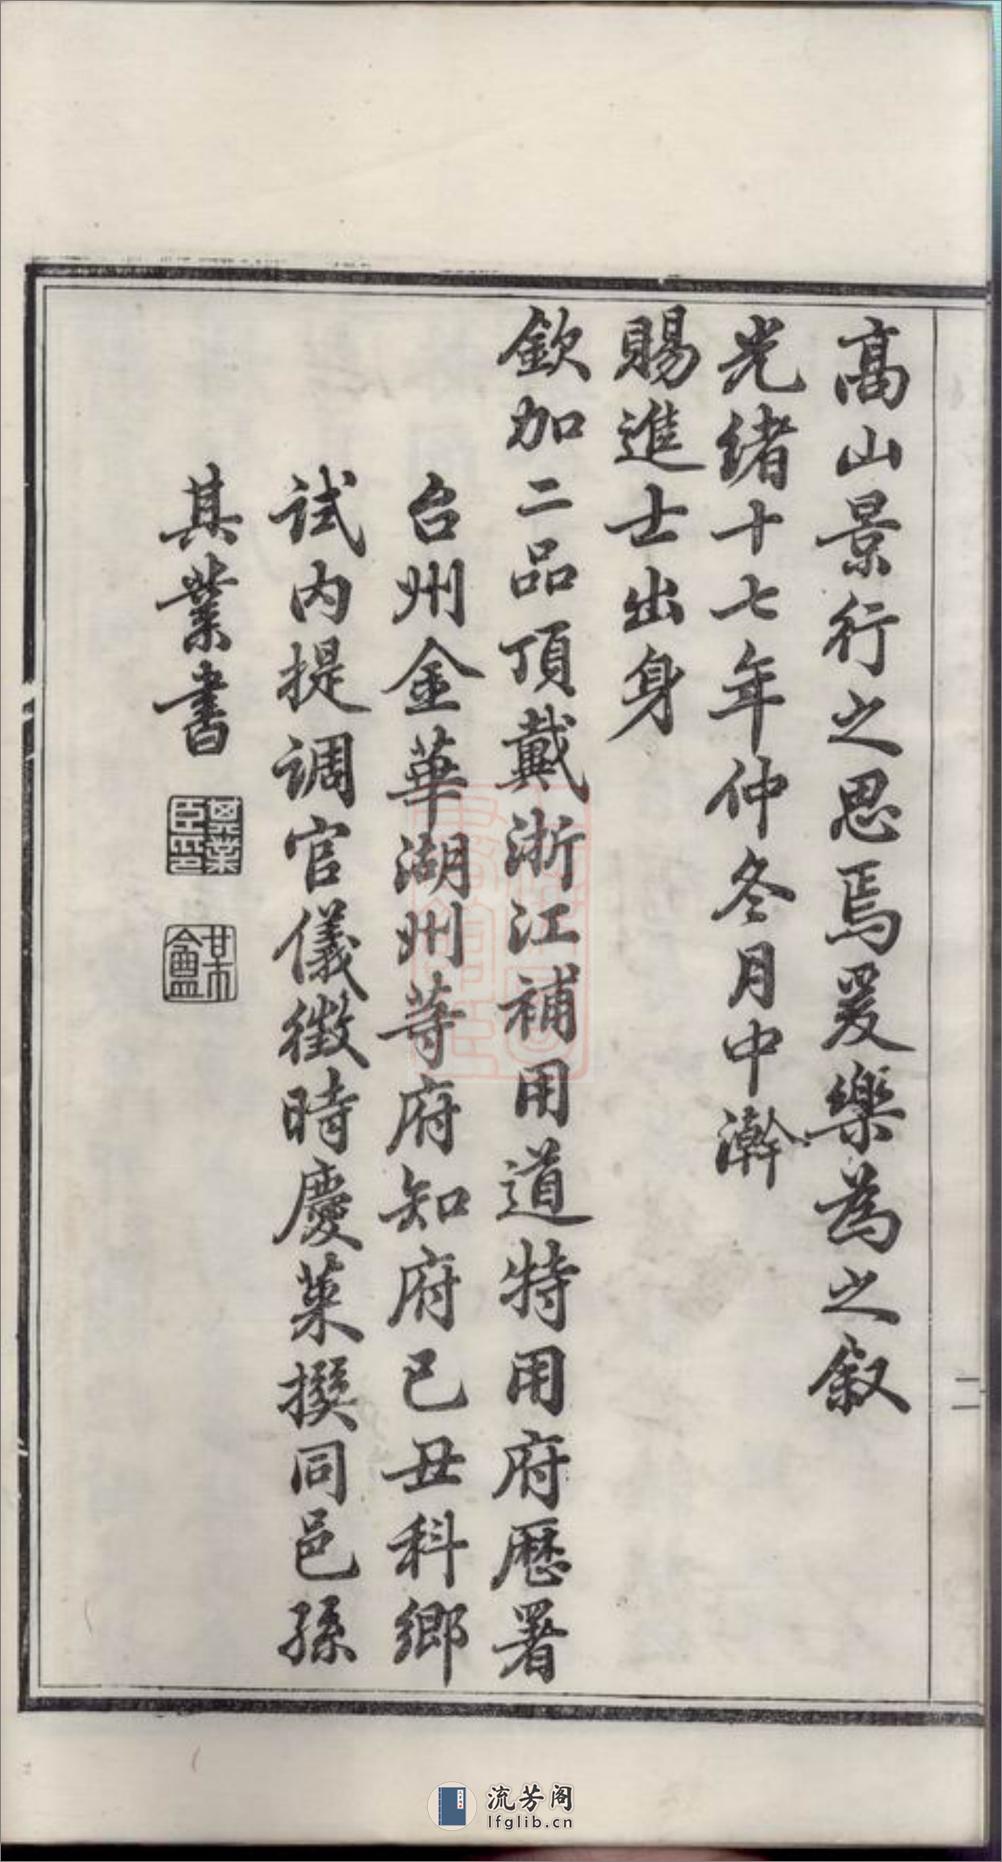 高山景行之思焉爰樂為之叙
光緒十七年仲冬月中澣
賜進士出身
欽加二品頂戴浙江補用道特用府歷署
台州金華湖州等府知府己丑科鄉
試內提調官儀徵時慶萊撰同邑孫
其業書
二
流芳阁
lfglib.cn